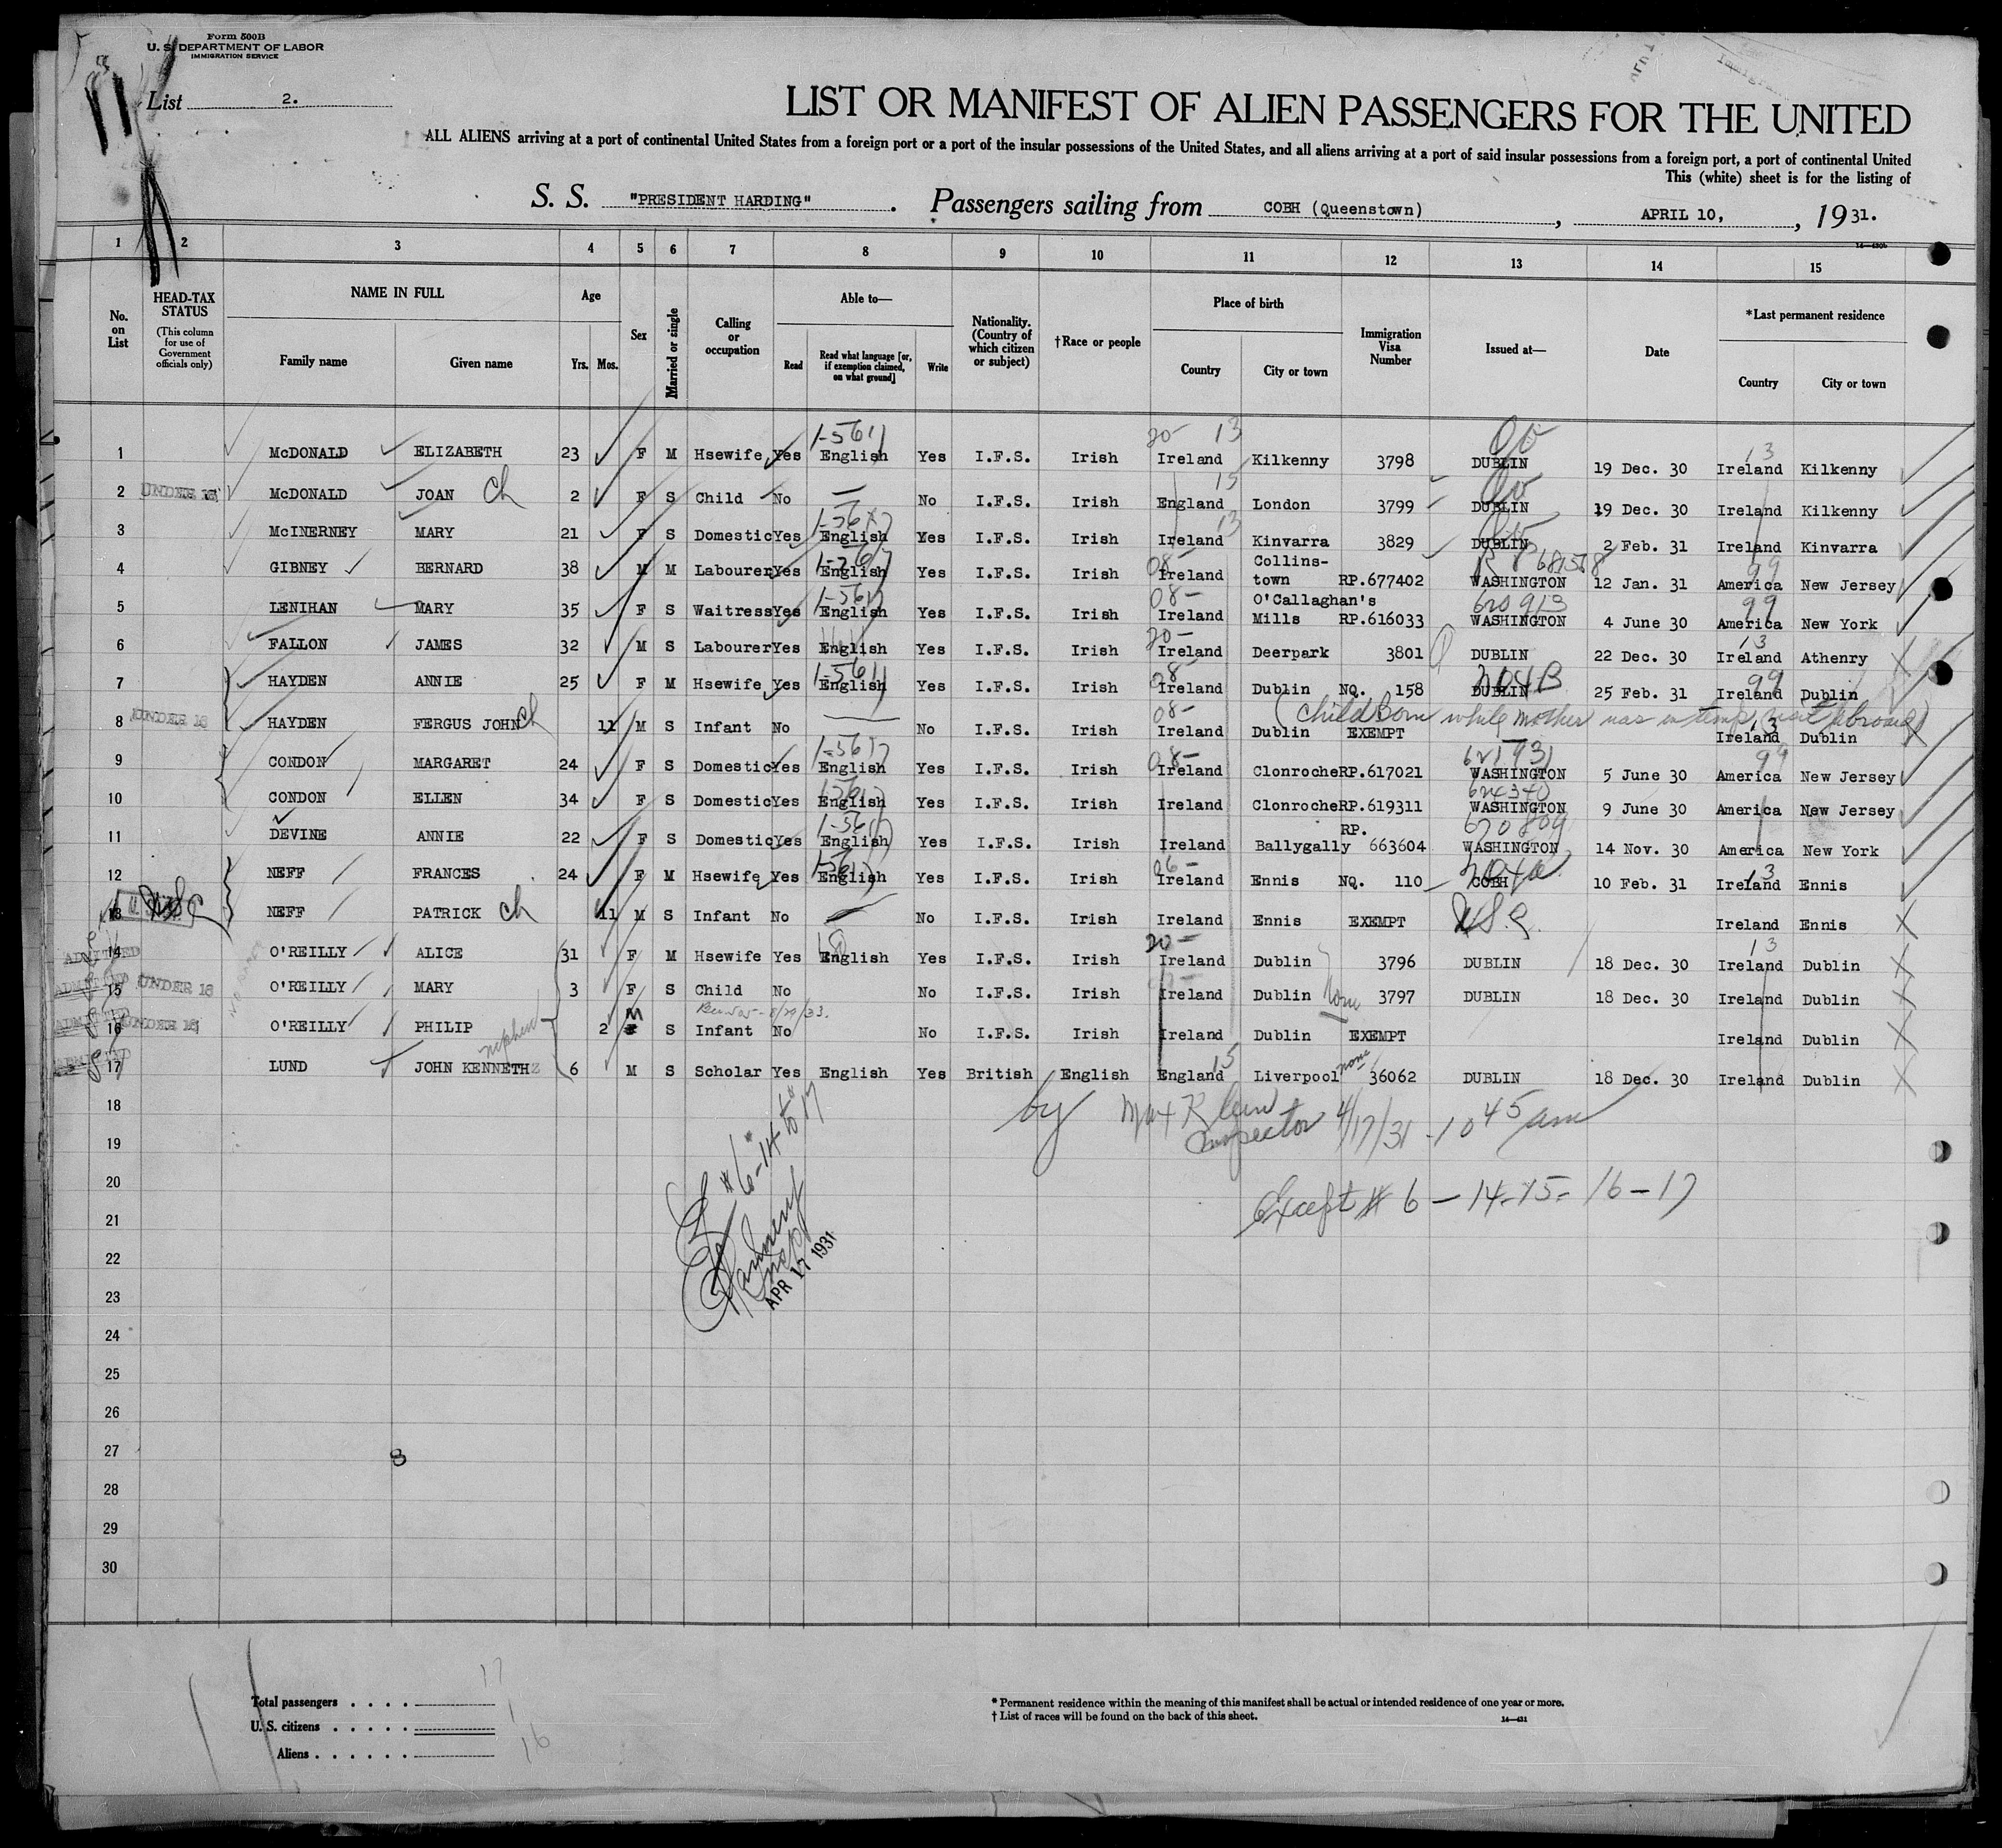 Form 500B
U. S. DEPARTMENT OF LABOR
IMMIGRATION SERVICE
List 2.
LIST OR MANIFEST OF ALIEN PASSENGERS FOR THE UNITED
ALL ALIENS arriving at a port of continental United States from a foreign port or a port of the insular possessions of the United States, and all aliens arriving at a port of said insular possessions from a foreign port, a port of continental United
This (white) sheet is for the listing of
S. S. "PRESIDENT HARDING" . Passengers sailing from COBH (Queenstown) , APRIL 10, , 1931.
1 2 3 4 5 6 7 8 9 10 11 12 13 14 15
No. on List
HEAD-TAX STATUS (This column for use of Government officials only)
NAME IN FULL Family name Given name
Age Yrs. Mos.
Sex
Married or single
Calling or occupation
Able to— Read Read what language [or, if exemption claimed, on what ground] Write
Nationality. (Country of which citizen or subject)
†Race or people
Place of birth Country City or town
Immigration Visa Number
Issued at—
Date
*Last permanent residence Country City or town
1 McDONALD ELIZABETH 23 F M Hsewife Yes English Yes I.F.S. Irish Ireland Kilkenny 3798 DUBLIN 19 Dec. 30 Ireland Kilkenny
2 UNDER 16 McDONALD JOAN Ch 2 F S Child No — No I.F.S. Irish England London 3799 DUBLIN 19 Dec. 30 Ireland Kilkenny
3 McINERNEY MARY 21 F S Domestic Yes English Yes I.F.S. Irish Ireland Kinvarra 3829 DUBLIN 2 Feb. 31 Ireland Kinvarra
4 GIBNEY BERNARD 38 M M Labourer Yes English Yes I.F.S. Irish Ireland Collins-town RP.677402 WASHINGTON 12 Jan. 31 America New Jersey
5 LENIHAN MARY 35 F S Waitress Yes English Yes I.F.S. Irish Ireland O'Callaghan's Mills RP.616033 620913 WASHINGTON 4 June 30 America New York
6 FALLON JAMES 32 M S Labourer Yes English Yes I.F.S. Irish Ireland Deerpark 3801 DUBLIN 22 Dec. 30 Ireland Athenry
7 HAYDEN ANNIE 25 F M Hsewife Yes English Yes I.F.S. Irish Ireland Dublin NQ. 158 DUBLIN 25 Feb. 31 Ireland Dublin
(Child born while mother was on temp. visit abroad)
8 UNDER 16 HAYDEN FERGUS JOHN Ch 11 M S Infant No — No I.F.S. Irish Ireland Dublin EXEMPT Ireland Dublin
9 CONDON MARGARET 24 F S Domestic Yes English Yes I.F.S. Irish Ireland Clonroche RP.617021 621931 WASHINGTON 5 June 30 America New Jersey
10 CONDON ELLEN 34 F S Domestic Yes English Yes I.F.S. Irish Ireland Clonroche RP.619311 624340 WASHINGTON 9 June 30 America New Jersey
11 DEVINE ANNIE 22 F S Domestic Yes English Yes I.F.S. Irish Ireland Ballygally RP. 663604 670809 WASHINGTON 14 Nov. 30 America New York
12 NEFF FRANCES 24 F M Hsewife Yes English Yes I.F.S. Irish Ireland Ennis NQ. 110 COBH 10 Feb. 31 Ireland Ennis
13 NEFF PATRICK Ch 11 M S Infant No — No I.F.S. Irish Ireland Ennis EXEMPT U.S.C. Ireland Ennis
14 ADMITTED O'REILLY ALICE 31 F M Hsewife Yes English Yes I.F.S. Irish Ireland Dublin 3796 DUBLIN 18 Dec. 30 Ireland Dublin
15 ADMITTED UNDER 16 O'REILLY MARY 3 F S Child No No I.F.S. Irish Ireland Dublin 3797 DUBLIN 18 Dec. 30 Ireland Dublin
16 ADMITTED UNDER 16 O'REILLY PHILIP 2 M S Infant No No I.F.S. Irish Ireland Dublin EXEMPT Ireland Dublin
17 ADMITTED LUND JOHN KENNETH nephew 6 M S Scholar Yes English Yes British English England Liverpool none 36062 DUBLIN 18 Dec. 30 Ireland Dublin
18
by Inspector 4/17/31 - 10 45 am
19
20
Except # 6 - 14-15- 16 - 17
21
22
#6-14 to 17
APR 17 1931
23
24
25
26
27
8
28
29
30
Total passengers . . . . 17
U. S. citizens . . . . . 1
Aliens . . . . . . 16
* Permanent residence within the meaning of this manifest shall be actual or intended residence of one year or more.
† List of races will be found on the back of this sheet.
14—431